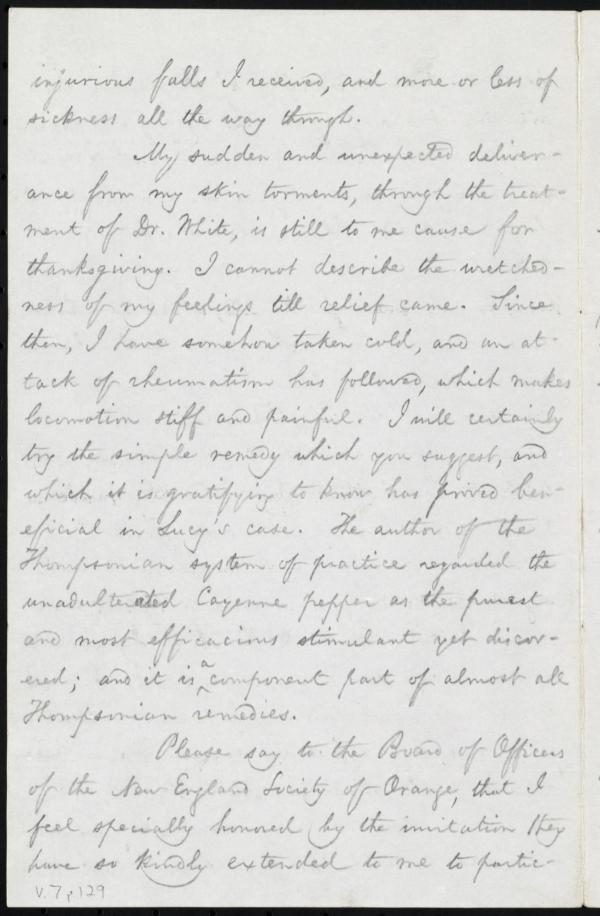 injurious falls I received, and more or less of
sickness all the way through.
My sudden and unexpected deliver-
ance from my skin torments, through the treat-
ment of Dr. White, is still to me cause for
thanksgiving. I cannot describe the wretched-
ness of my feelings till relief came. Since
then, I have somehow taken cold, and an at-
tack of rheumatism has followed, which makes
locomotion stiff and painful. I will certainly
try the simple remedy which you suggest, and
which it is gratifying to know has proved ben-
eficial in Lucy's case. The author of the
Thompsonian system of practice regarded the
unadulterated Cayenne pepper as the purest
and most efficacious stimulant yet discov-
ered; and it is a component part of almost all
Thompsonian remedies.
Please say to the Board of Officers
of the New England Society of Orange, that I
feel specially honored by the invitation they
have so kindly extended to me to partic-
v.7, p.129